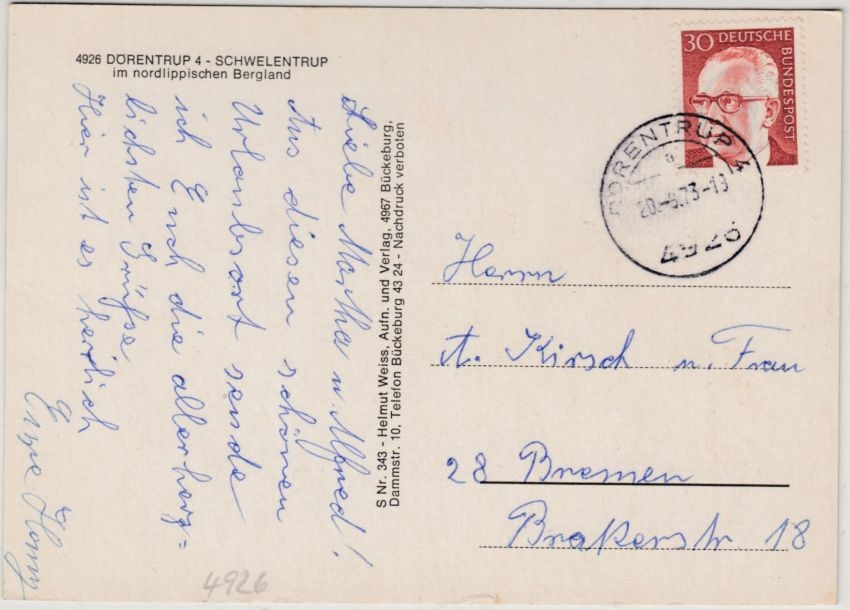 4926 DÖRENTRUP 4 - SCHWELENTRUP
im nordlippischen Bergland
Liebe Martha u. Alfred!
Aus diesen schönen
Urlaubsort sende
ich Euch die allerherz=
lichsten Grüße
Hier ist es herrlich
S Nr. 343 - Helmut Weiss, Aufn. und Verlag, 4967 Bückeburg,
Dammstr. 10, Telefon Bückeburg 43 24 - Nachdruck verboten
30 DEUTSCHE
BUNDESPOST
DÖRENTRUP 4
a
4926
Herrn
A. Kirsch u. Frau
28 Bremen
Brakerstr 18
4926